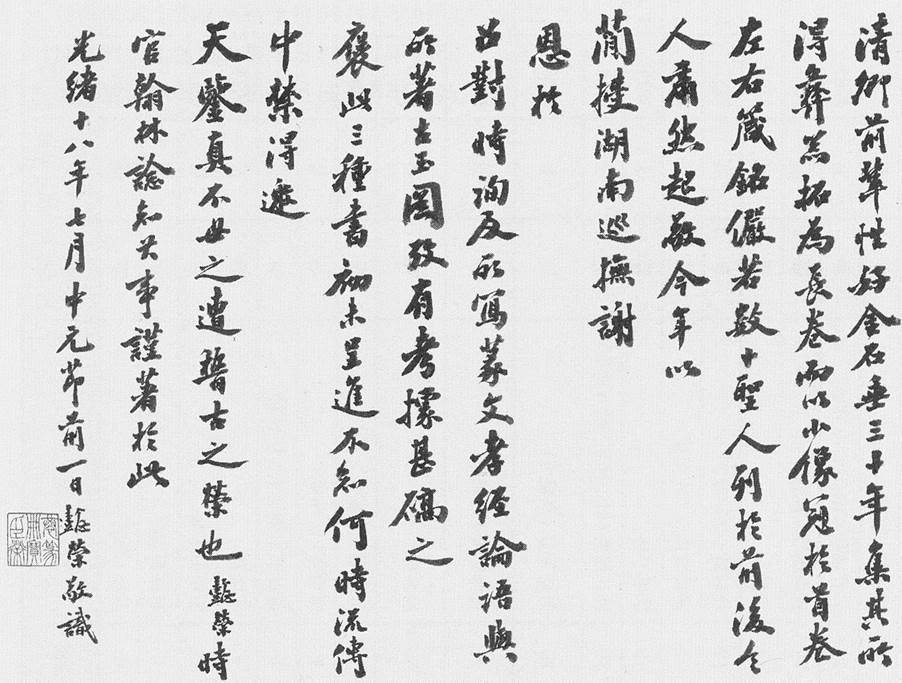 清卿前輩性好金石垂三十年集其所
得彝器拓為長卷而以小像冠於首卷
左右箴銘儼若數十聖人列於前後令
人肅然起敬今年以
簡擢湖南巡撫謝
恩於
召對時詢及所寫篆文孝經論語與
所著古玉圖攷有考據甚礄之
褒此三種書初未呈進不知何時流傳
中禁得邀
天鑒真不世之遭豎古之榮也懿榮時
官翰林諗知其事謹著於此
光緒十八年七月中元節前一日懿榮敬識